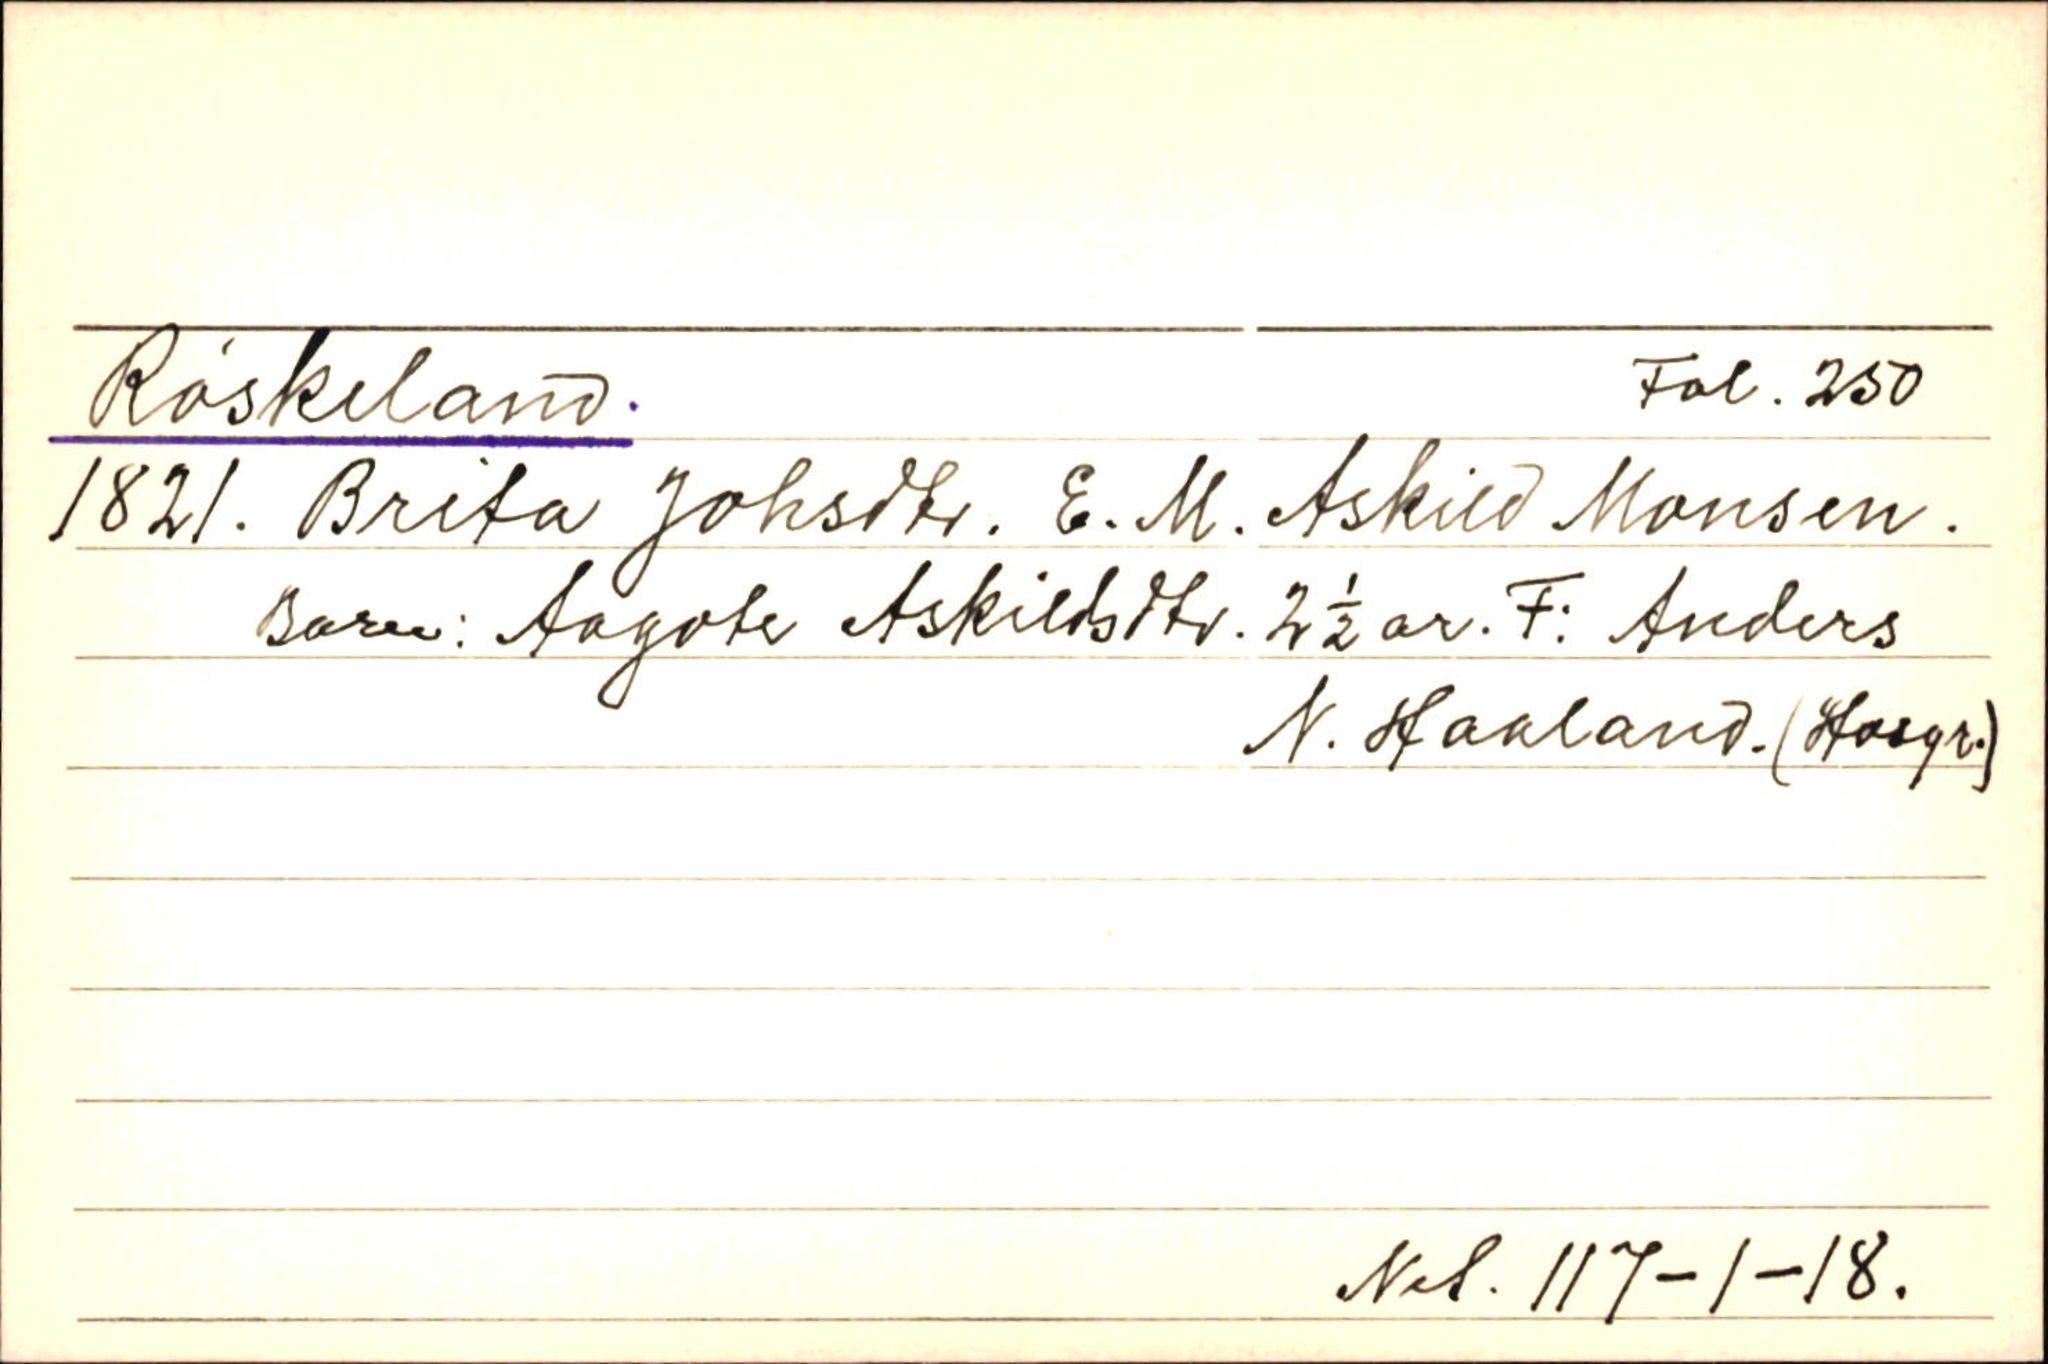 Röskeland. Fol. 250
1821. Brita Johsdtr. E. M. Askild Monsen.
Born: Aagote Askildsdtr. 2½ ar. F: Anders
N. Haaland. (Hosgr.)
Net. 117-1-18.